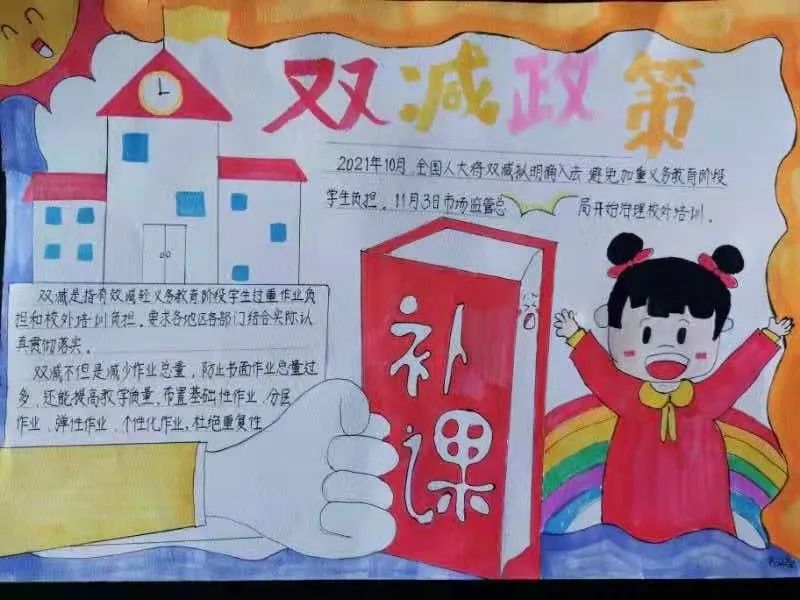 双减政策
2021年10月 全国人大将双减拟明确入法 避免加重义务教育阶段
学生负担. 11月3日市场监管总局开始治理校外培训.
双减是指有效减轻义务教育阶段学生过重作业负
担和校外培训负担. 要求各地区各部门结合实际认
真贯彻落实.
双减不但是减少作业总量, 防止书面作业总量过
多, 还能提高教学质量, 布置基础性作业, 分层
作业, 弹性作业, 个性化作业, 杜绝重复性
补课